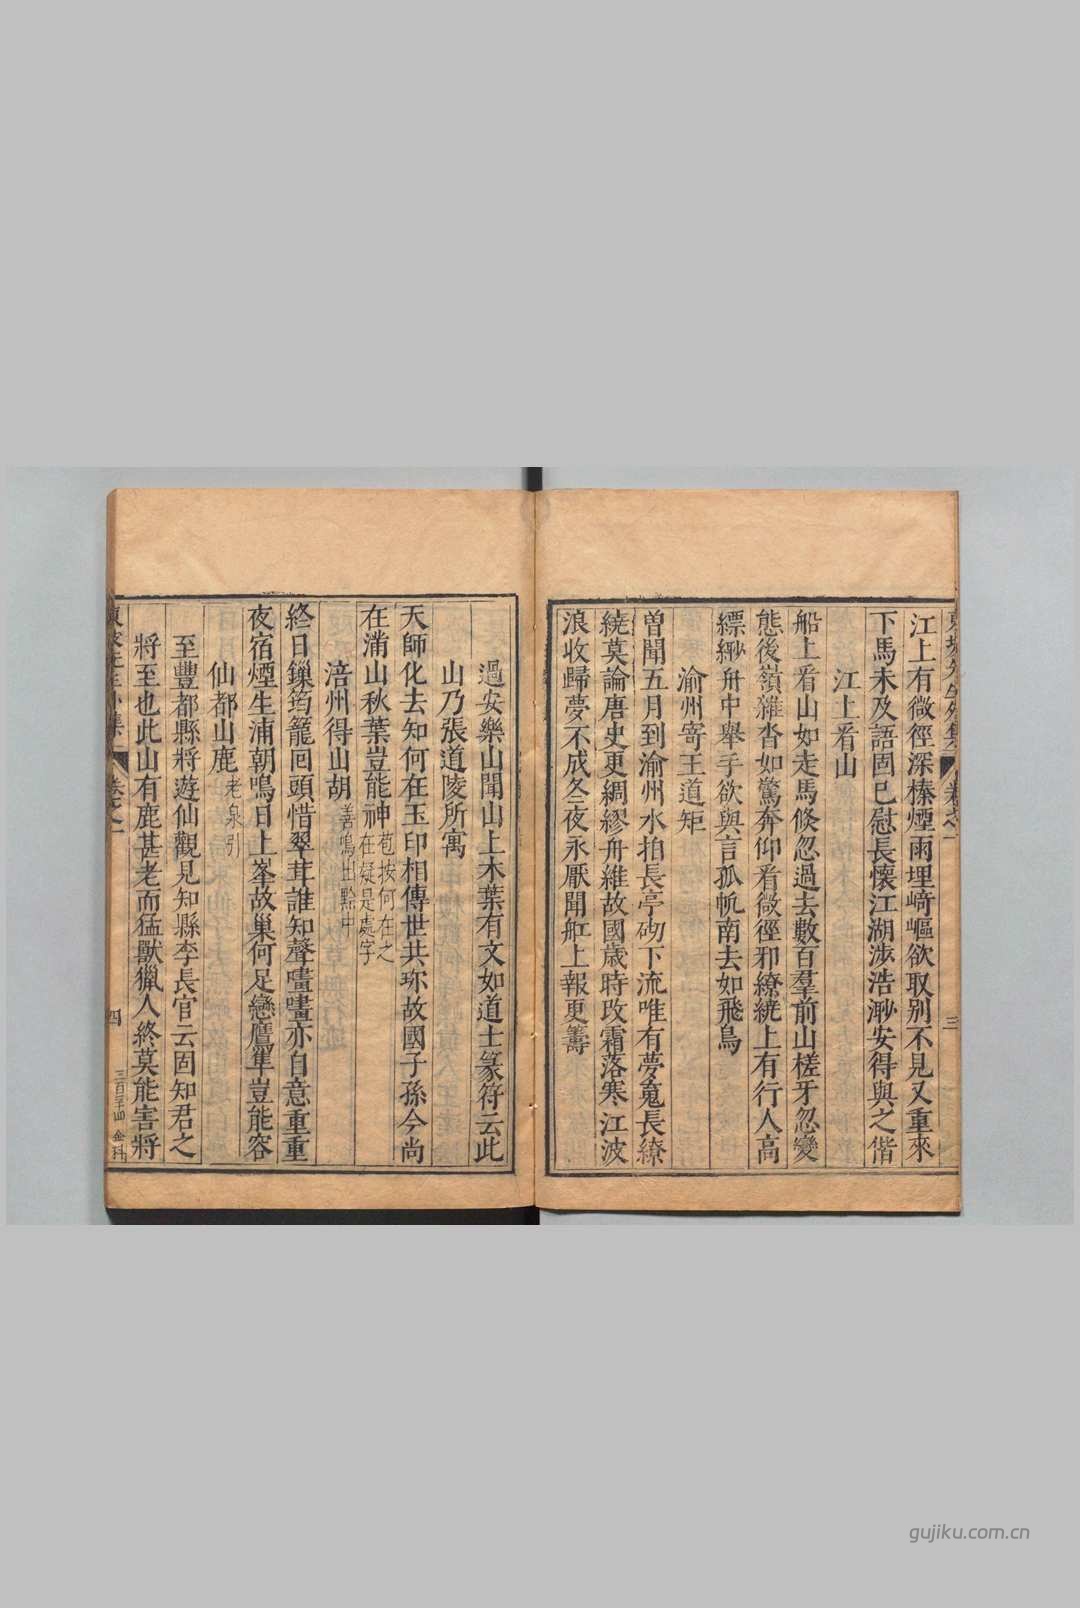 江上有微徑深榛煙雨埋﨑嶇欲取別不見又重來
下馬未及語固已慰長懷江湖涉浩渺安得與之偕
江上看山
船上看山如走馬倏忽過去數百羣前山槎牙忽變
態後嶺雜沓如驚奔仰看微徑邪繚繞上有行人高
縹緲舟中舉手欲與言孤帆南去如飛鳥
渝州寄王道矩
曾聞五月到渝州水拍長亭砌下流唯有夢䰟長繚
繞莫論唐史更綢繆舟維故國歲時改霜落寒江波
浪收歸夢不成冬夜永厭聞舡上報更籌
東坡先生外集 卷之一 三
過安樂山聞山上木葉有文如道士篆符云此
山乃張道陵所寓
天師化去知何在玉印相傳世共珎故國子孫今尚
在滿山秋葉豈能神 苞按何在之
在擬是處字
涪州得山胡 善鳴出黔中
終日鏁筠籠囘頭惜翠茸誰知聲嘒嘒亦自意重重
夜宿煙生浦朝鳴日上峯故巢何足戀鷹隼豈能容
仙都山鹿 老泉引
至豐都縣將遊仙觀見知縣李長官云固知君之
將至也此山有鹿甚老而猛獸獵人終莫能害將
東坡先生外集 卷之一 四
gujiku.com.cn